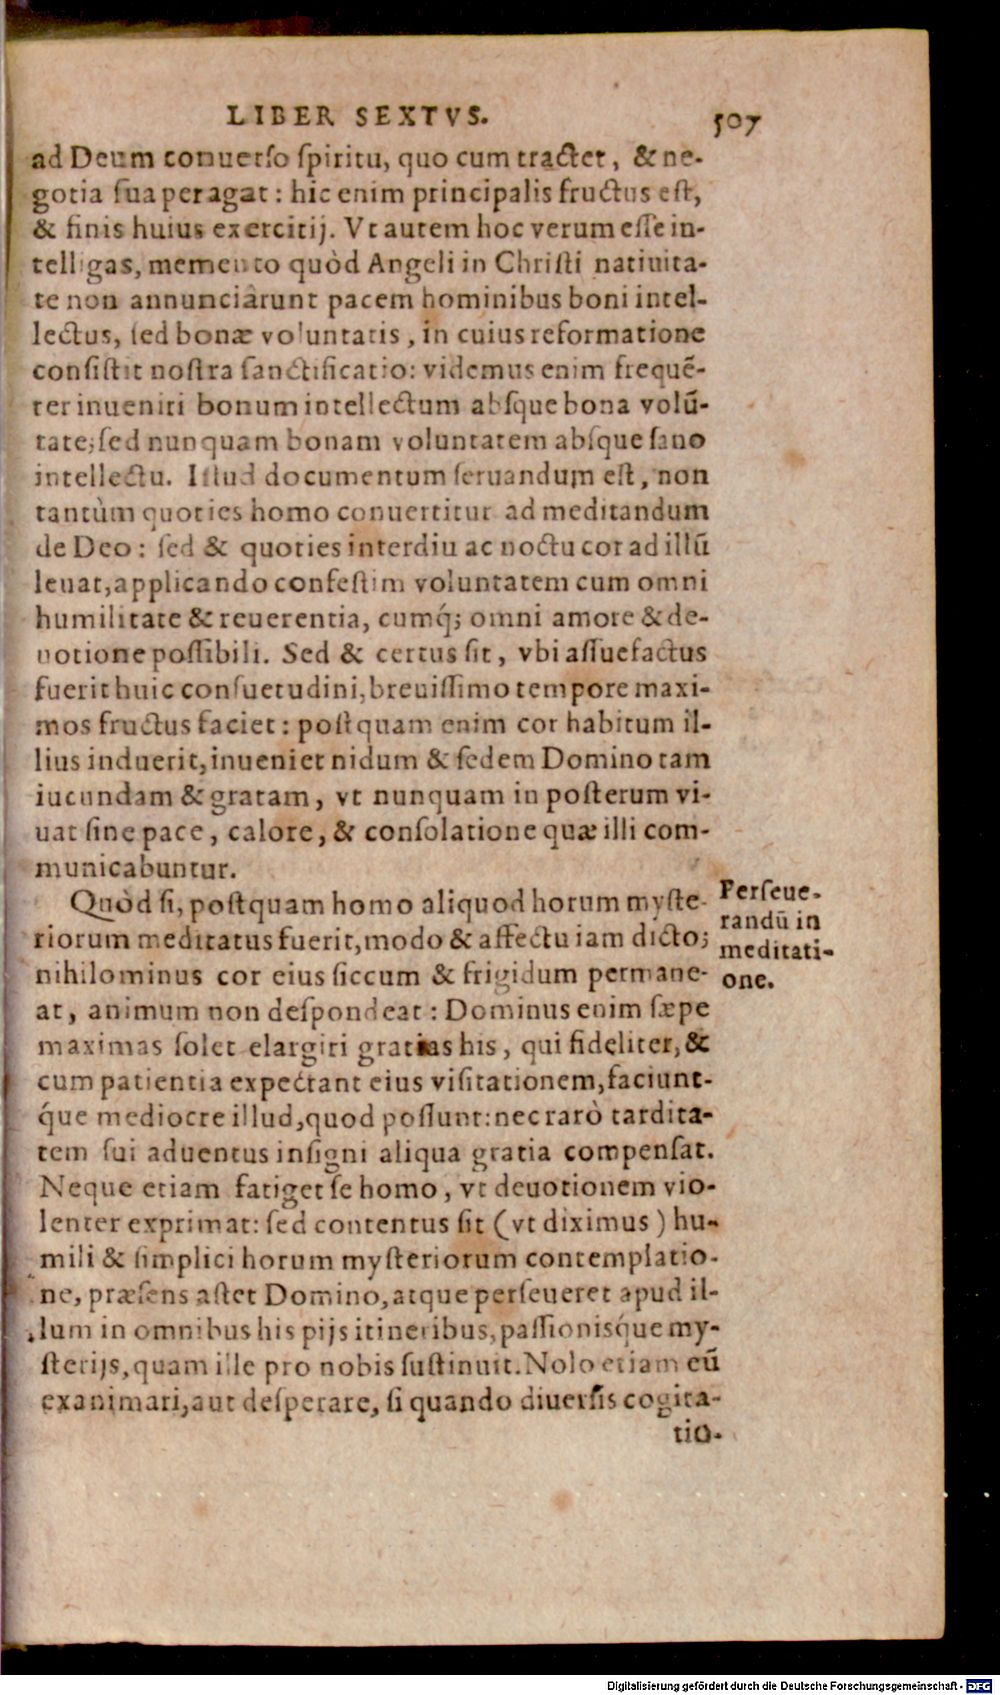 LIBER SEXTVS. 507
ad Deum conuerſo ſpiritu, quo cum tractet, & ne-
gotia ſua peragat: hic enim principalis fructus eſt,
& finis huius exercitij. Vt autem hoc verum eſſe in-
telligas, memento quòd Angeli in Chriſti natiuita-
te non annunciârunt pacem hominibus boni intel-
lectus, ſed bonæ voluntatis, in cuius reformatione
conſiſtit noſtra ſanctificatio: videmus enim frequẽ-
ter inueniri bonum intellectum abſque bona volũ-
tate; ſed nunquam bonam voluntatem abſque ſano
intellectu. Illud documentum ſeruandum eſt, non
tantùm quoties homo conuertitur ad meditandum
de Deo: ſed & quoties interdiu ac noctu cor ad illũ
leuat, applicando confeſtim voluntatem cum omni
humilitate & reuerentia, cumq́; omni amore & de-
uotione poſſibili. Sed & certus ſit, vbi aſſuefactus
fuerit huic conſuetudini, breuiſſimo tempore maxi-
mos fructus faciet: poſtquam enim cor habitum il-
lius induerit, inueniet nidum & ſedem Domino tam
iucundam & gratam, vt nunquam in poſterum vi-
uat ſine pace, calore, & conſolatione quæ illi com-
municabuntur.
Quòd ſi, poſtquam homo aliquod horum myſte-
riorum meditatus fuerit, modo & affectu iam dicto;
nihilominus cor eius ſiccum & frigidum permane-
at, animum non deſpondeat: Dominus enim ſæpe
maximas ſolet elargiri gratias his, qui fideliter, &
cum patientia expectant eius viſitationem, faciunt-
q́ue mediocre illud, quod poſſunt: nec rarò tardita-
tem ſui aduentus inſigni aliqua gratia compenſat.
Neque etiam fatiget ſe homo, vt deuotionem vio-
lenter exprimat: ſed contentus ſit (vt diximus) hu-
mili & ſimplici horum myſteriorum contemplatio-
ne, præſens aſtet Domino, atque perſeueret apud il-
lum in omnibus his pijs itineribus, paſſionisq́ue my-
ſterijs, quam ille pro nobis ſuſtinuit. Nolo etiam eũ
exanimari, aut deſperare, ſi quando diuerſis cogita-
tio-
Perſeue-
randũ in
meditati-
one.
Digitalisierung gefördert durch die Deutsche Forschungsgemeinschaft - DFG